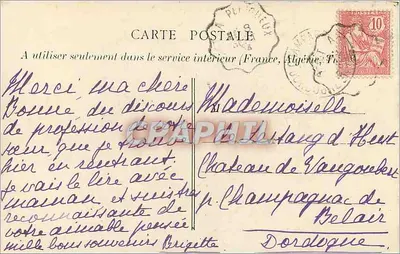 CARTE POSTALE
A utiliser seulement dans le service intérieur (France, Algérie,
10
Merci, ma chère
Bonne du discours
de profession de votre
sœur que je
hier en rentrant.
Je vais le lire avec
maman et suis très
reconnaissante de
votre aimable pensée
mille bons souvenirs Brigette
Mademoiselle
Chateau de
p. Champagnac de
Belair
Dordogne
CPAPHIL